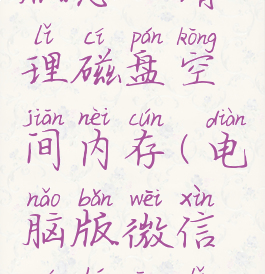 lǐ cí pán kōng
理磁盘空
jiān nèi cún diàn
间内存(电
nǎo bǎn wēi xìn
脑版微信